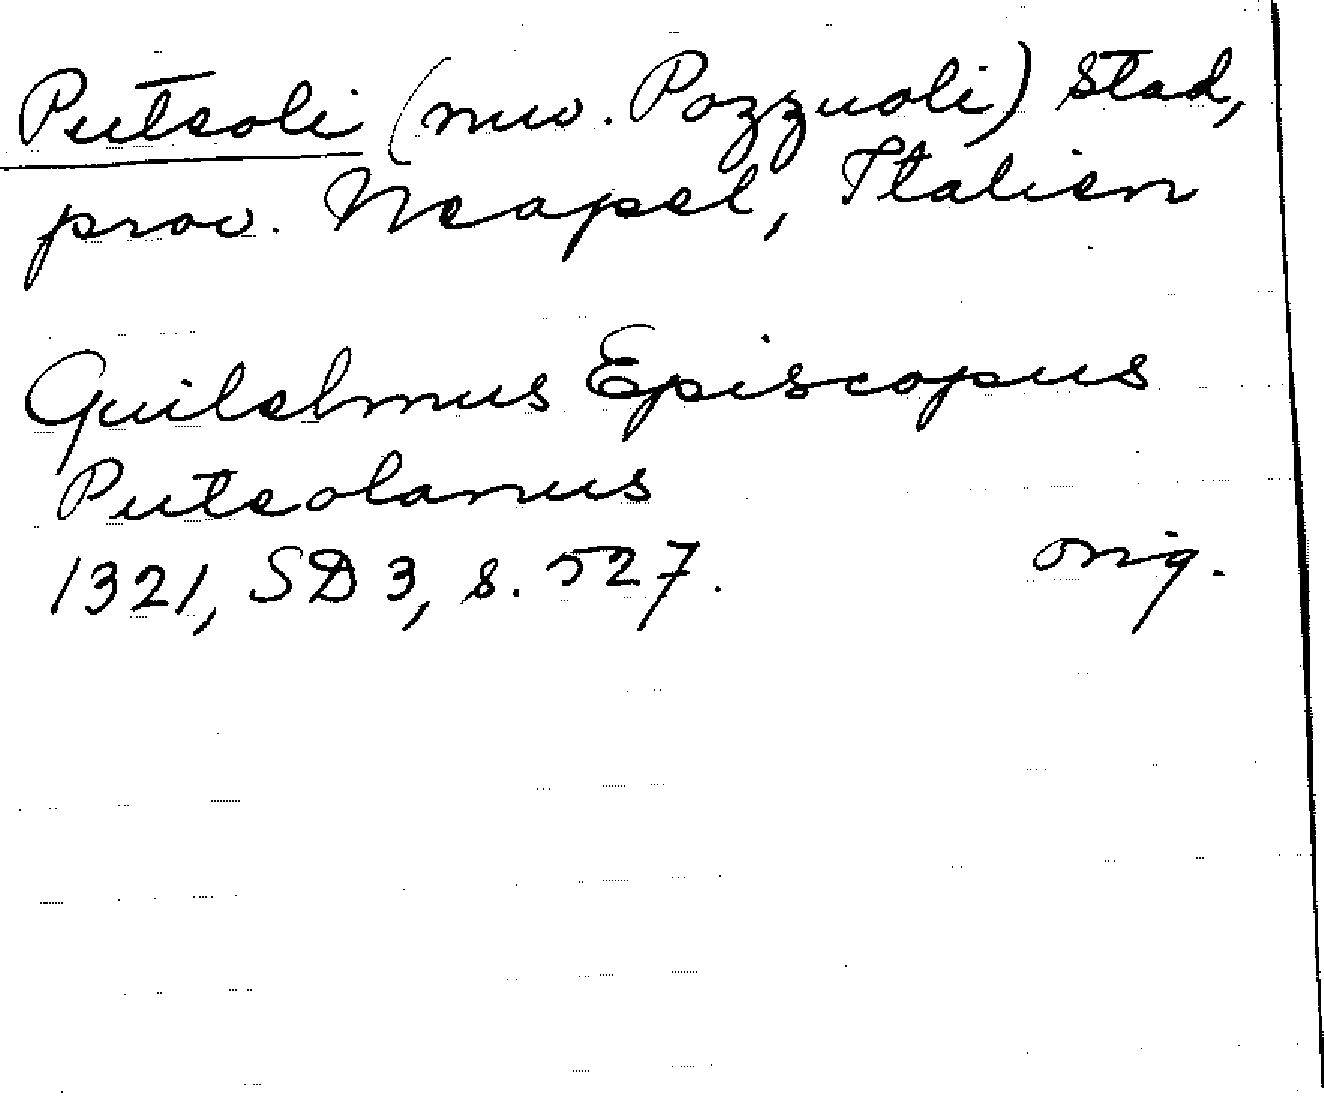 Puteoli (nuv. Pozzuoli) stad,
prov. Neapel, Italien
Guilelmus Episcopus
Puteolanus
1321, SD 3, s. 527. orig.